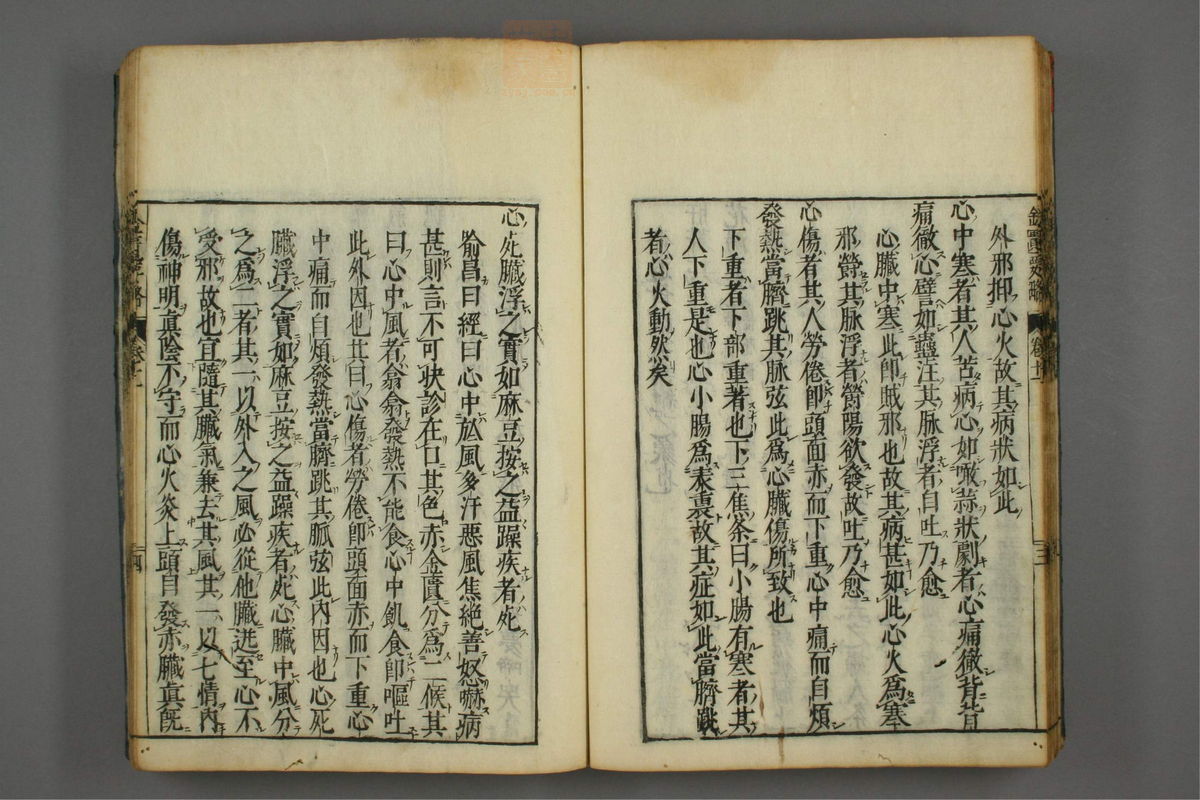 外邪抑心火故其病狀如此
心中寒者其人苦病心如噉蒜狀劇者心痛徹背背
痛徹心譬如蠱注其脉浮者自吐乃愈
心臟中寒此卽賊邪也故其病甚如此心火爲寒
邪欝其脉浮者欝陽欲發故吐乃愈
心傷者其人勞倦卽頭面赤而下重心中痛而自煩
發熱當臍跳其脉弦此爲心臟傷所致也
下重者下部重著也下三焦条曰小腸有寒者其
人下重是也心小腸爲表裏故其症如此當臍跳
者心火動然矣
心死臟浮之實如麻豆按之益躁疾者死
喻昌曰經曰心中於風多汗惡風焦絶善怒嚇病
甚則言不可快診在口其色赤金匱分爲二候其
曰心中風者翕翕發熱不能食心中飢食卽嘔吐
此外因也其曰心傷者勞倦卽頭面赤而下重心
中痛而自煩發熱當臍跳其脈弦此內因也心死
臟浮之實如麻豆按之益躁疾者死心臟中風分
之爲二者其一以外入之風必從他臟迸至心不
受邪故也宜隨其臟氣兼去其風其一以七情內
傷神明真陰不守而心火炎上頭自發赤臟真旣